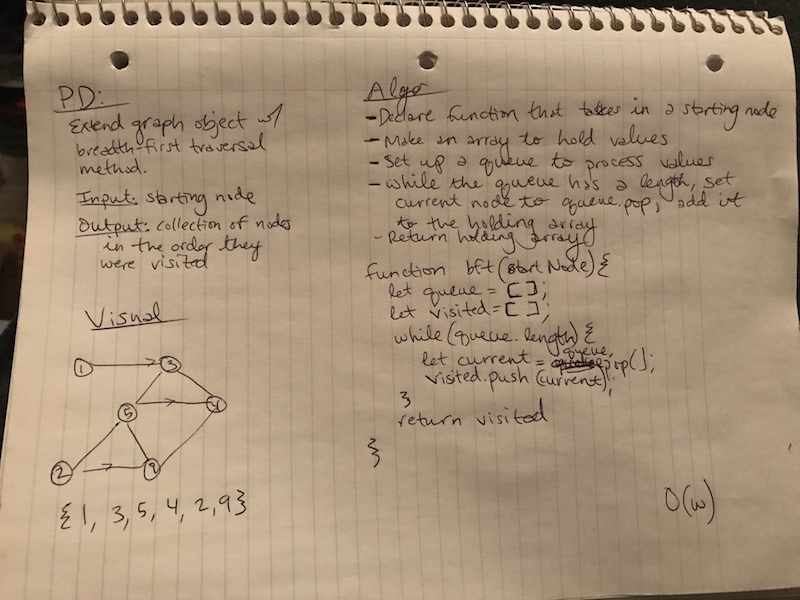 PD:
Extend graph object w/
breadth-first traversal
method.
Input: starting node
Output: collection of nodes
in the order they
were visited
Visual
1
3
5
4
2
9
{1, 3, 5, 4, 2, 9}
Algo
- Declare function that takes in a starting node
- Make an array to hold values
- Set up a queue to process values
- while the queue has a length, set
current node to queue.pop, add it
to the holding array
- Return holding array
function bft(startNode){
let queue = [ ];
let visited = [ ];
while(queue.length){
let current = queue.pop();
visited.push(current);
}
return visited
}
O(w)